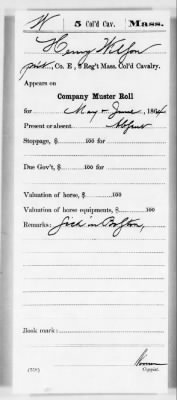 W | 5 Col'd Cav. | Mass.
Henry Wilson
pvt., Co. E, 5 Reg't Mass. Col'd Cavalry.
Appears on
Company Muster Roll
for May & June, 1864
Present or absent Absent
Stoppage, $ 100 for
Due Gov't, $ 100 for
Valuation of horse, $ 100
Valuation of horse equipments, $ 100
Remarks: Sick in Boston,
Book mark:
(358)
Copyist.